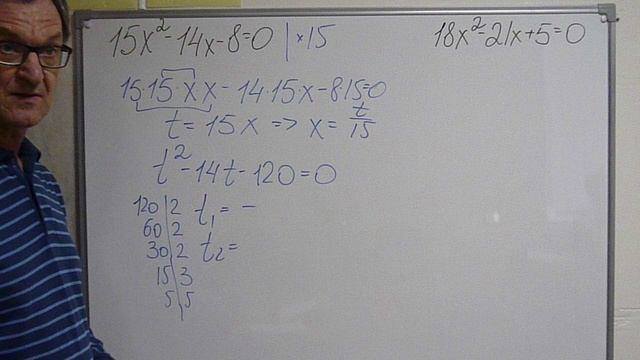 15x²-14x-8=0 |×15
18x²-21x+5=0
15·15·x·x-14·15x-8·15=0
t=15x=>x=t/15
t²-14t-120=0
120|2 t₁=-
60|2
30|2 t₂=
15|3
5|5